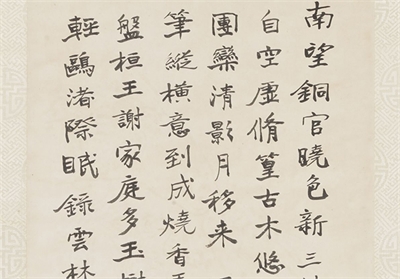 南望銅官曉色新三
自空虛脩篁古木悠
團欒清影月移來
筆縱橫意到成燒香
盤桓王謝家庭多玉
輕鷗渚際眠 錄雲林